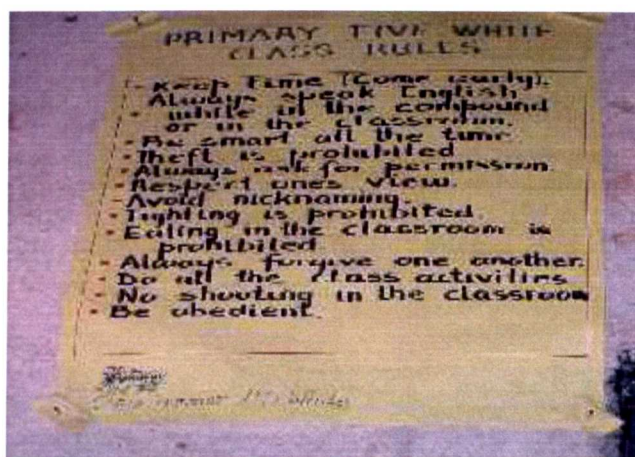 PRIMARY FIVE WHITE
CLASS RULES
- Keep Time (Come early).
- Always speak English
while in the compound
or in the classroom.
- Be smart all the time
- Theft is prohibited
- Always ask for permission
- Respect ones view.
- Avoid nicknaming.
- Fighting is prohibited.
- Eating in the classroom is
prohibited
- Always forgive one another.
- Do all the class activities
- No shouting in the classroom
- Be obedient.